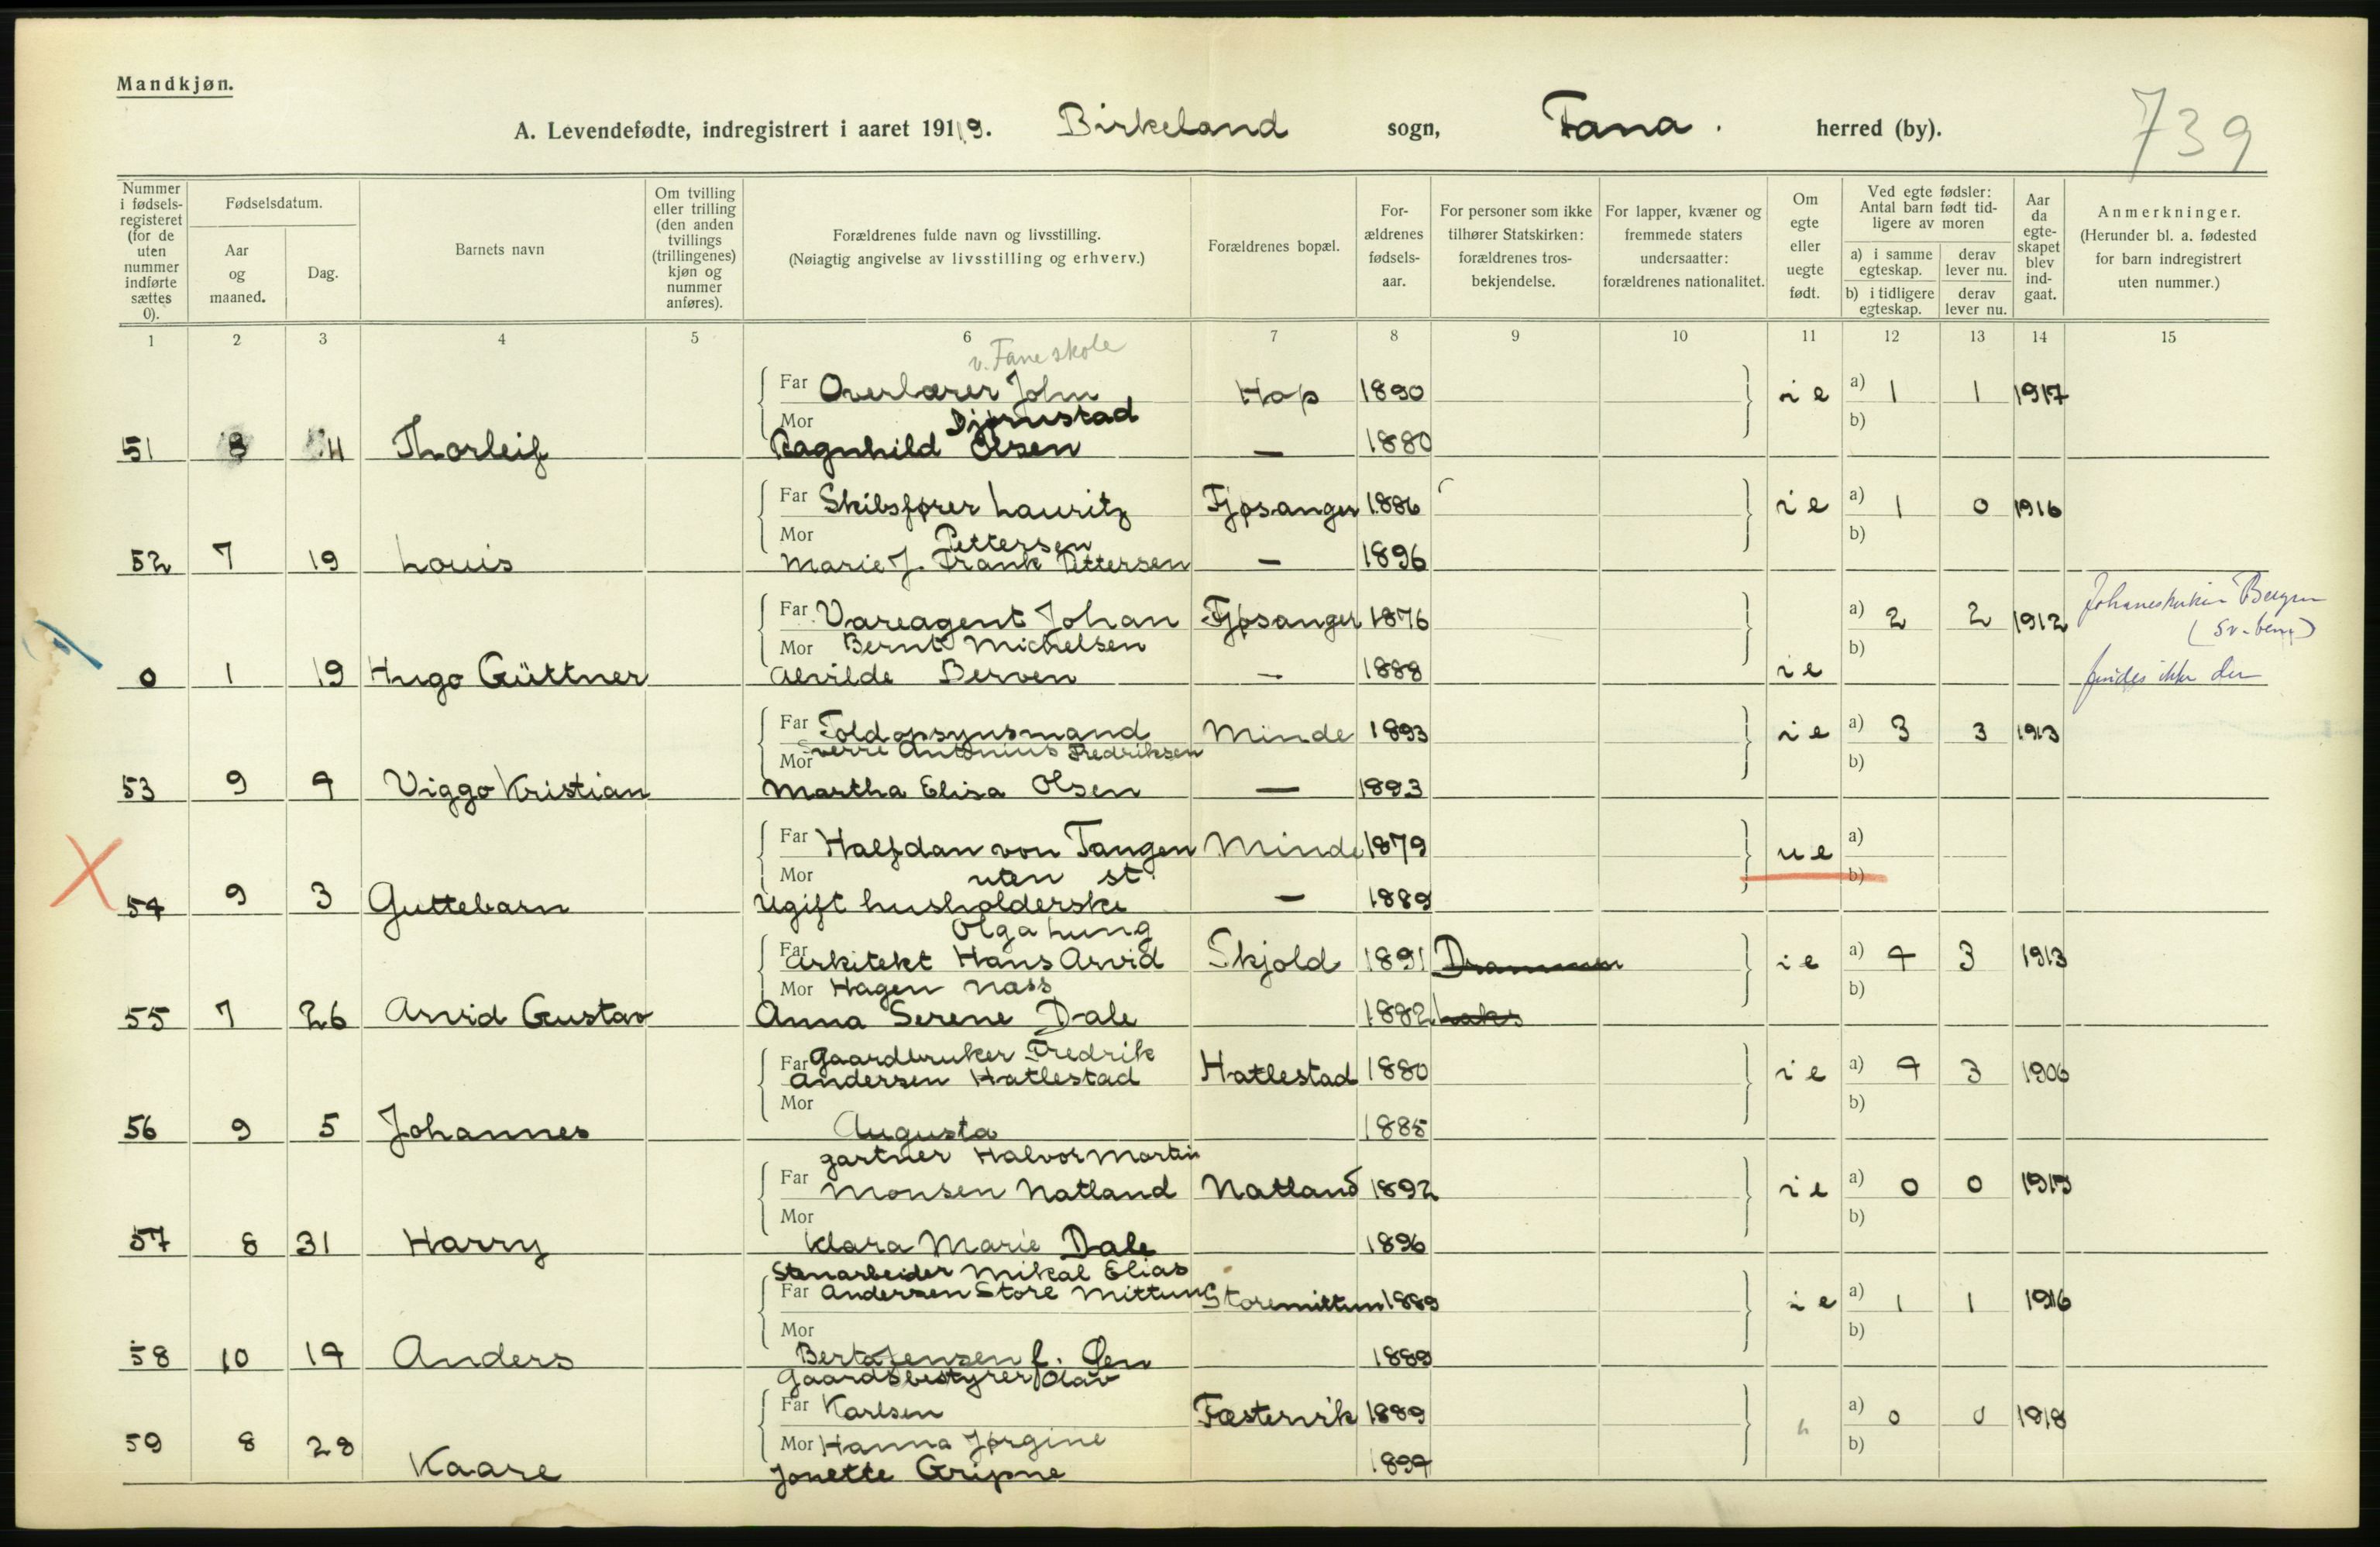 Mandkjøn.
A. Levendefødte, indregistrert i aaret 1919. Birkeland sogn, Fana. herred (by).
739
Nummer i fødsels-registeret (for de uten nummer indførte sættes 0).
Fødselsdatum.
Aar og maaned.
Dag.
Barnets navn
Om tvilling eller trilling (den anden tvillings (trillingenes) kjøn og nummer anføres).
Forældrenes fulde navn og livsstilling.
(Nøiagtig angivelse av livsstilling og erhverv.)
Forældrenes bopæl.
For-ældrenes fødsels-aar.
For personer som ikke tilhører Statskirken: forældrenes tros-bekjendelse.
For lapper, kvæner og fremmede staters undersaatter: forældrenes nationalitet.
Om egte eller uegte født.
Ved egte fødsler: Antal barn født tid-ligere av moren
a) i samme egteskap. derav lever nu.
b) i tidligere egteskap. derav lever nu.
Aar da egte-skapet blev ind-gaat.
Anmerkninger.
(Herunder bl. a. fødested for barn indregistrert uten nummer.)
1 2 3 4 5 6 7 8 9 10 11 12 13 14 15
v. Fane skole
Far Overlærer John Hop 1890 i e a) 1 1 1917
Mor Djønnstad b)
51 8 4 Thorleif Ragnhild Olsen — 1880
Far Skibsfører Lauritz Fjøsanger 1886 i e a) 1 0 1916
Mor Pettersen b)
52 7 19 Louis Marie J. Frank Pettersen — 1896
Far Vareagent Johan Fjøsanger 1876 a) 2 2 1912 Bergen
Mor Bernt Michelsen b)
0 1 19 Hugo Güttner Alvilde Berven — 1888 i e findes ikke der
Far Toldopsynsmand Minde 1893 i e a) 3 3 1913
Sverre Antonius Fredriksen
Mor b)
53 9 4 Viggo Kristian Martha Elisa Olsen — 1893
Far Halfdan von Tangen Minde 1879 u e a)
Mor uten st. b)
54 9 3 Guttebarn Ugift husholderske — 1889
Olga Lung
Far Arkitekt Hans Arvid Skjold 1891 Drammen i e a) 4 3 1913
Mor Hagen Nass b)
55 7 26 Arvid Gustav Anna Serene Dale 1882
Gaardbruker Fredrik
Far Andersen Hatlestad Hatlestad 1880 i e a) 4 3 1906
Mor b)
56 9 5 Johannes Augusta 1885
gartner Halvor Martin
Far Monsen Natland Natland 1892 i e a) 0 0 1919
Mor b)
57 8 31 Harry Klara Marie Dale 1896
Stenarbeider Mikal Elias
Far Andersen Store Mittun Storemittun 1889 i e a) 1 1 1916
Mor b)
58 10 14 Anders Berta Jensen f. 1889
Gaardsbestyrer Olav
Far Karlsen Fæstervik 1889 " a) 0 0 1918
Mor Hanna Jørgine b)
59 8 28 Kaare Jonette Gripne 1894